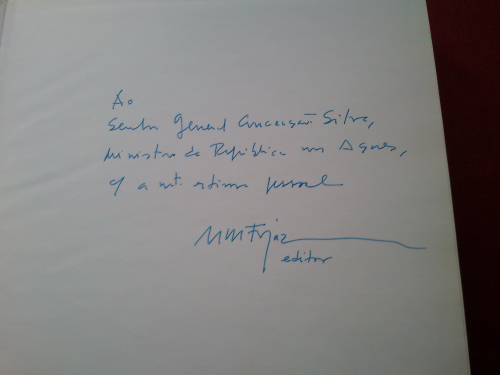 Ao
Senhor General Conceição Silva,
Ministro da República nos Açores,
c/ a mt. estima pessoal
editor